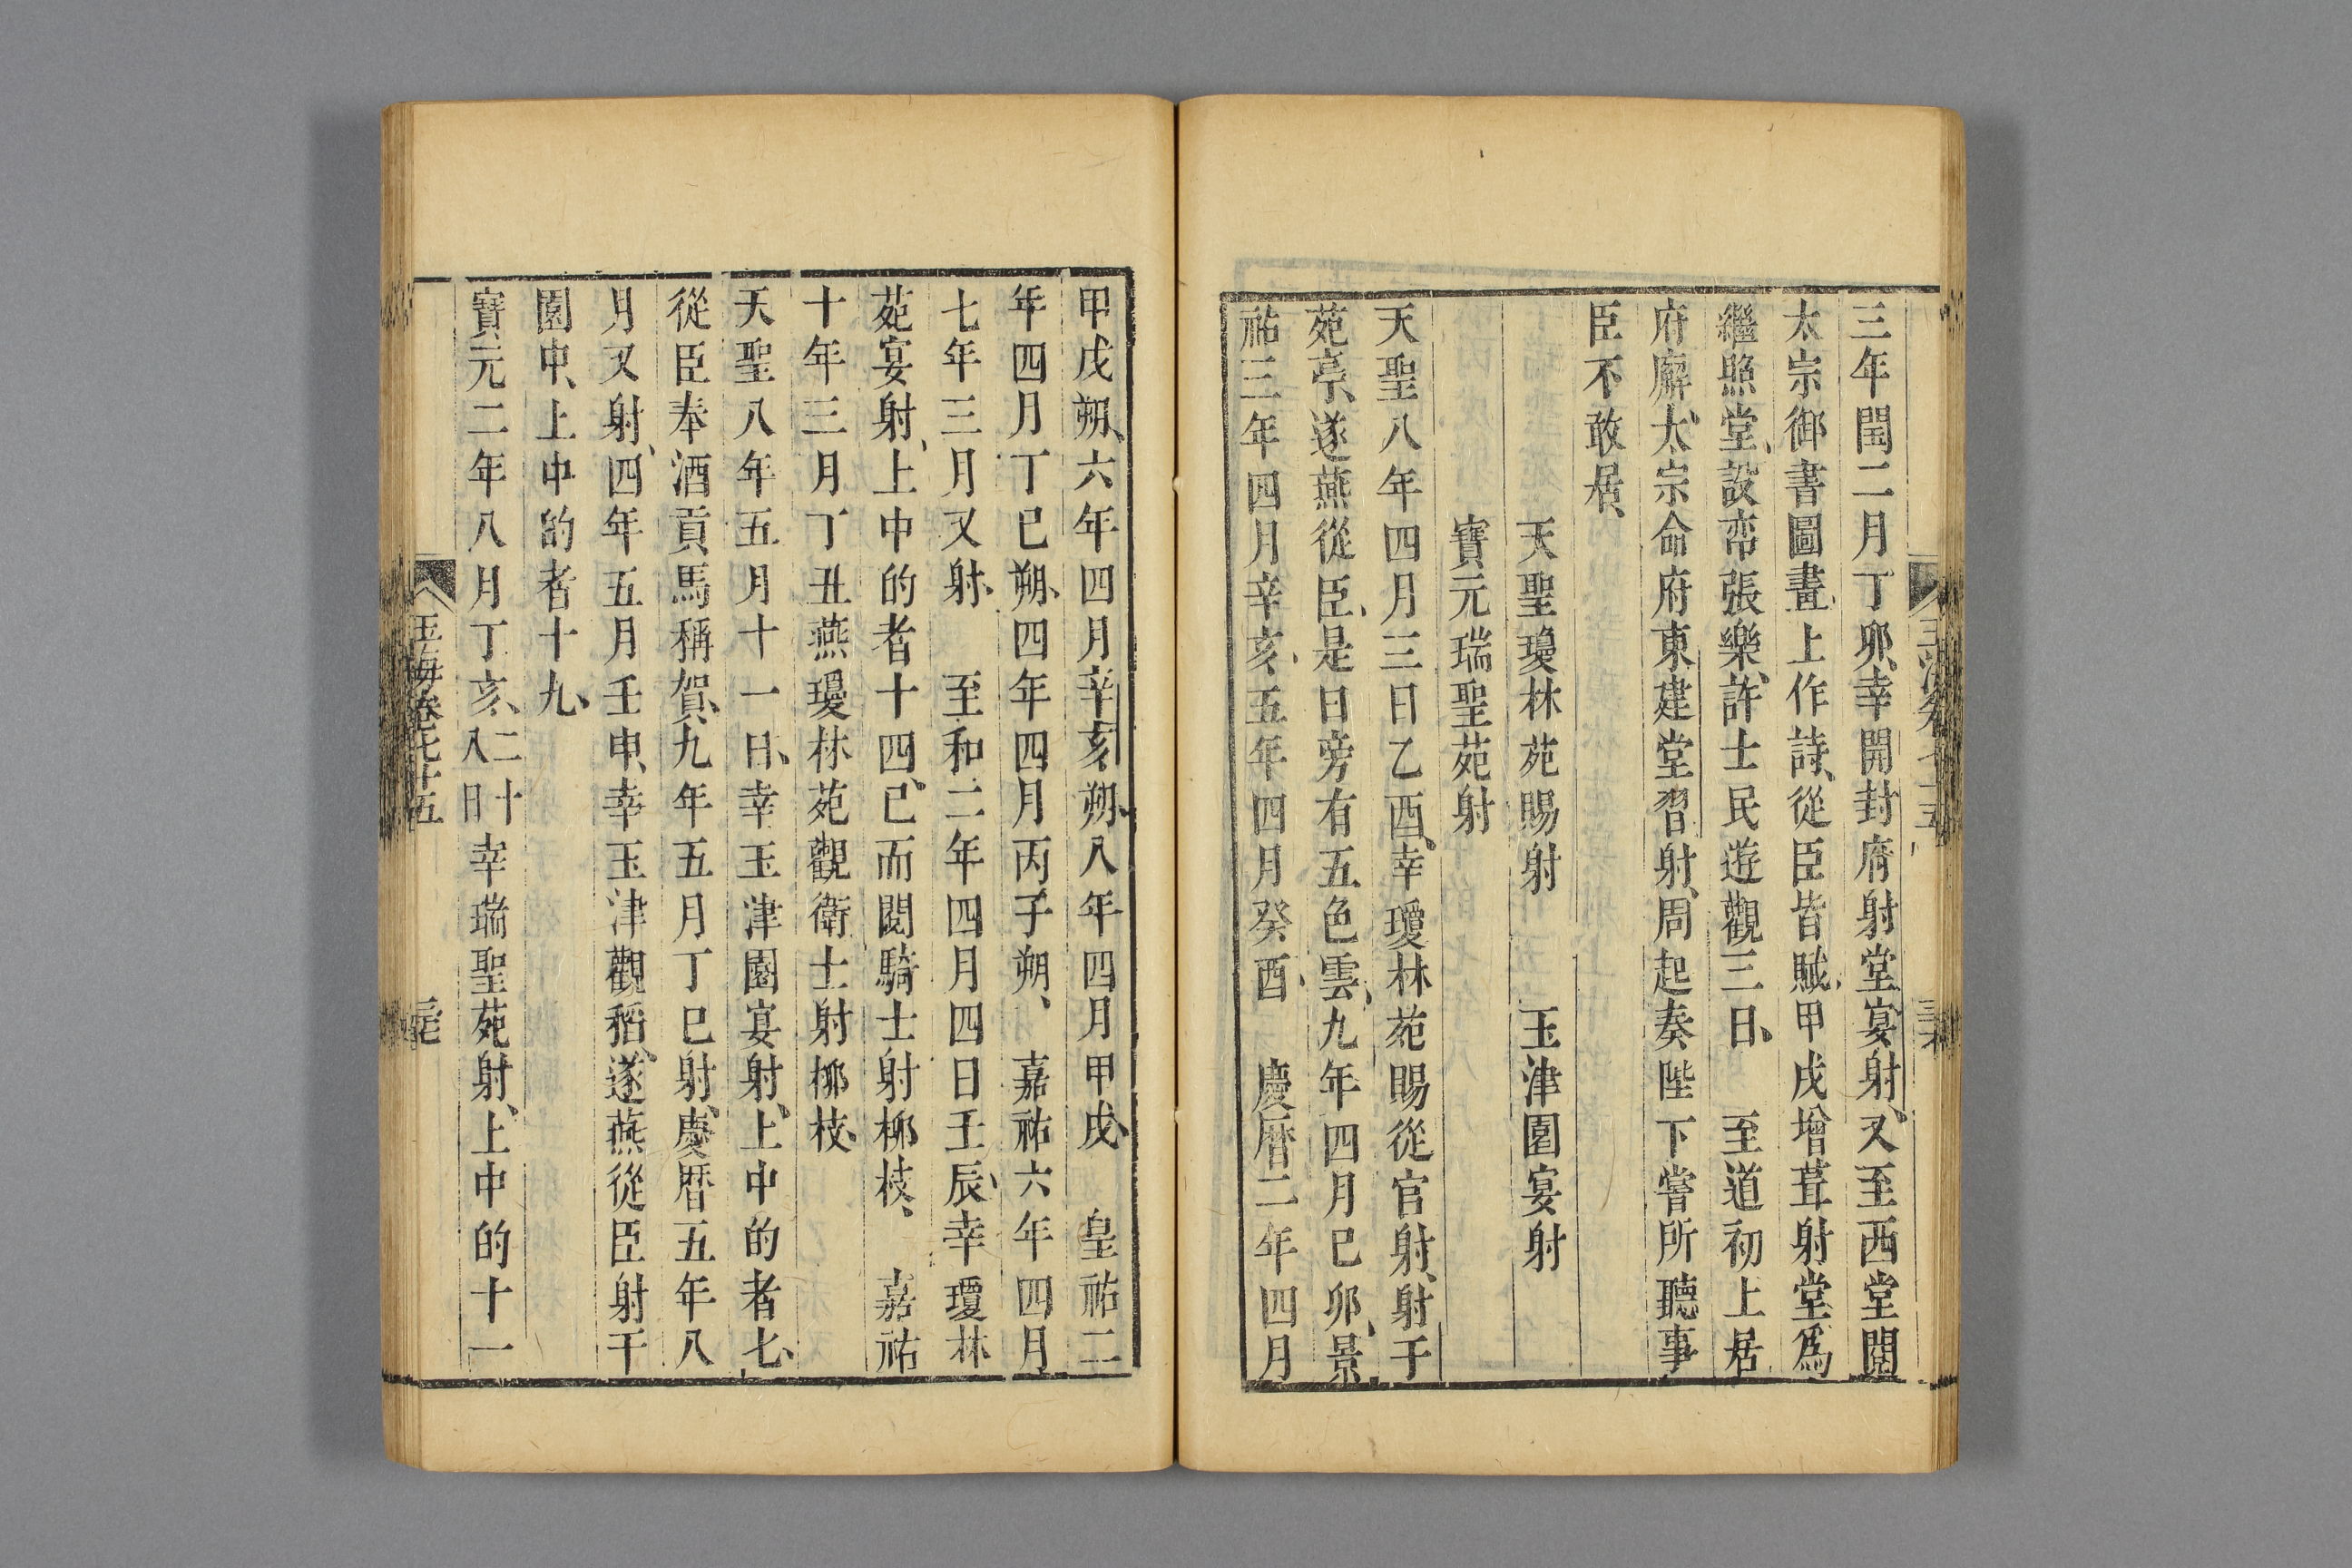 三年閏二月丁卯、幸開封府射堂宴射、又至西堂閱
太宗御書圖畫、上作詩、從臣皆賦、甲戌增葺射堂為
繼照堂、設帟張樂、許士民遊觀三日、　至道初上居
府廨、太宗命府東建堂習射、周起奏陛下嘗所聽事
臣不敢居、
天聖瓊林苑賜射　　玉津園宴射
寶元瑞聖苑射
天聖八年四月三日乙酉、幸瓊林苑賜從官射、射于
苑亭、遂燕從臣、是日旁有五色雲、九年四月已卯、景
祐三年四月辛亥、五年四月癸酉、　慶曆二年四月
甲戌朔、六年四月辛亥朔、八年四月甲戌、　皇祐二
年四月丁巳朔、四年四月丙子朔、　嘉祐六年四月
七年三月又射、　至和二年四月四日壬辰、幸瓊林
苑宴射、上中的者十四、已而閱騎士射柳枝、　嘉祐
十年三月丁丑燕瓊林苑觀衛士射柳枝、
天聖八年五月十一日、幸玉津園宴射、上中的者七、
從臣奉酒貢馬稱賀、九年五月丁巳射、慶曆五年八
月又射、四年五月壬申、幸玉津觀稻、遂燕從臣射于
園中、上中的者十九、
寶元二年八月丁亥、二十八日幸瑞聖苑射、上中的十一
玉海卷七十五